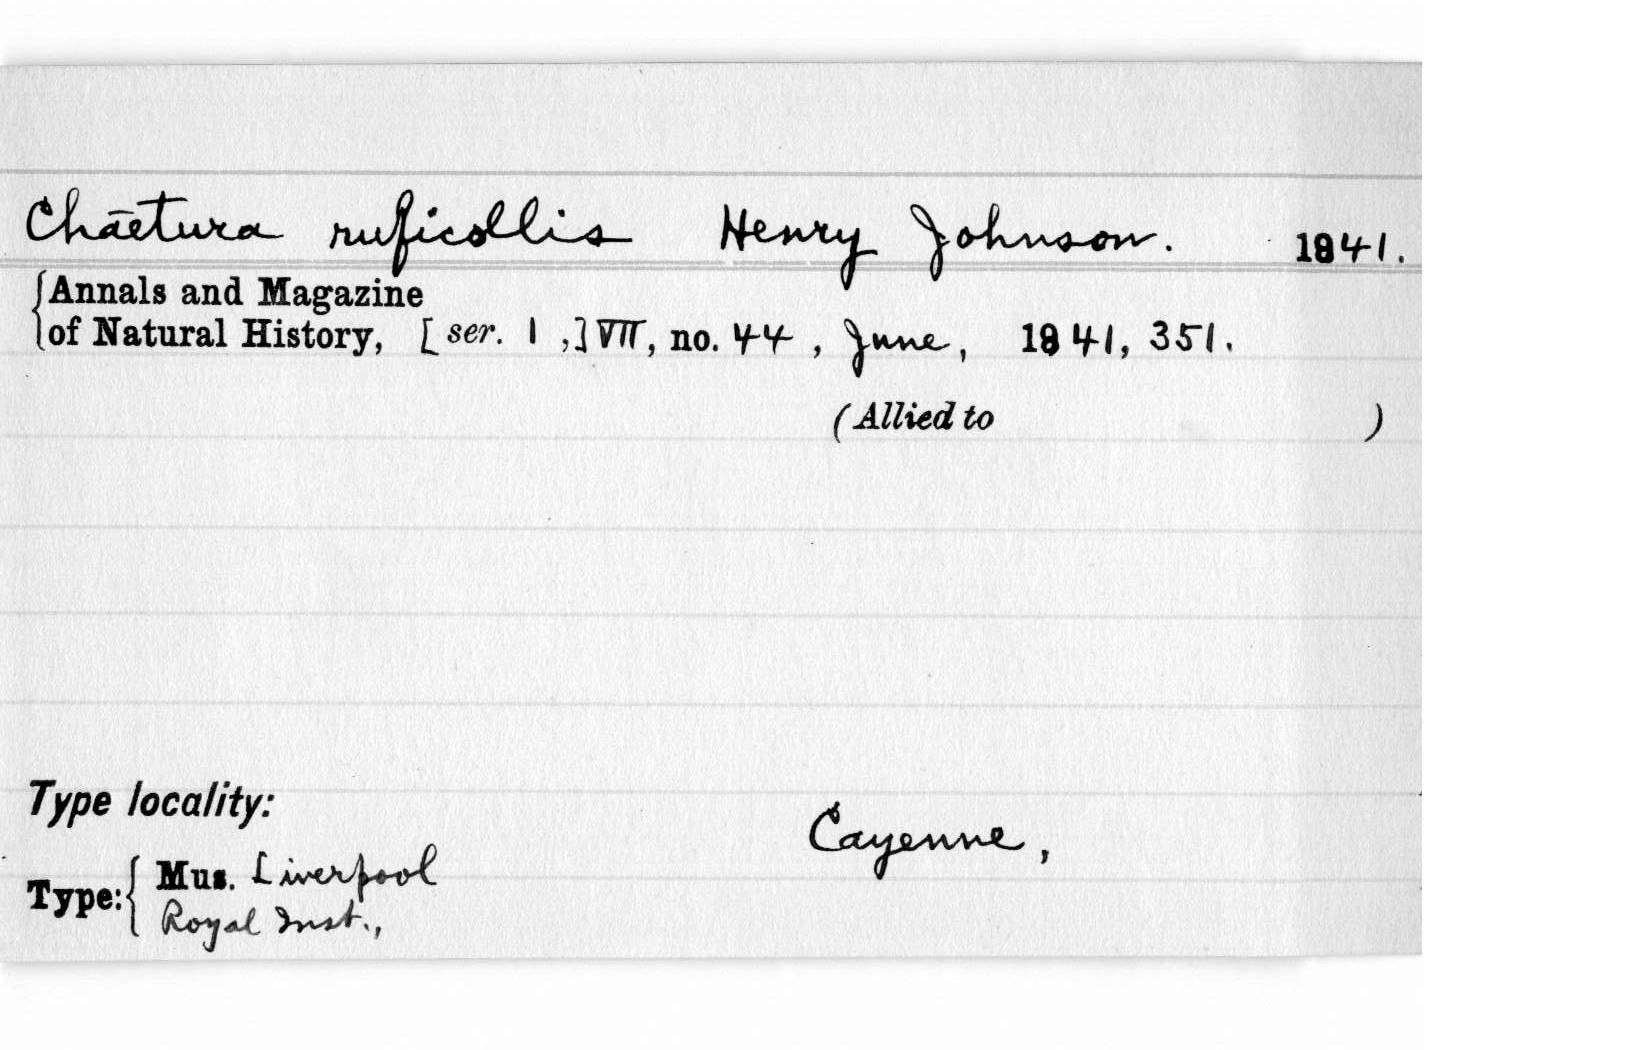 Chaetura ruficollis Henry Johnson. 1841.
Annals and Magazine
of Natural History, [ ser. 1 ,] VII, no. 44 , June, 1841, 351.
(Allied to )
Type locality:
Cayenne,
Type: Mus. Liverpool
Royal Inst.,